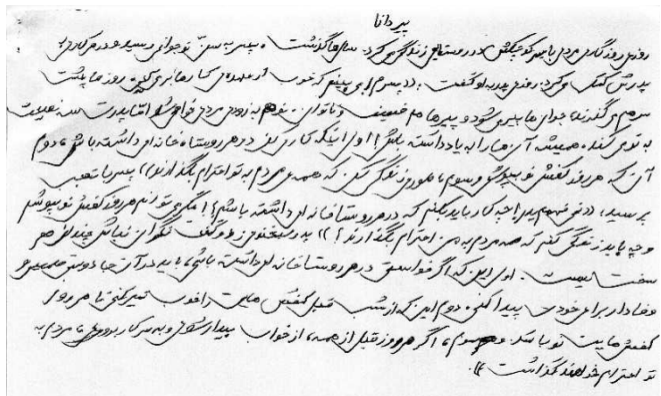 پیر دانا
روزی روزگاری مردی با پسر کوچکش در روستایی زندگی می کرد. سال ها گذشت. پسر به سن نوجوانی رسید و در هر کاری به
پدرش کمک می کرد. روزی پدر به او گفت: «پسرم می بینم که خوب از عهده ی کارها بر می آیی. روزها پشت
سر هم می گذرند، جوان ها پیر می شوند و پیرها هم ضعیف و ناتوان. تو هم به زودی مردی خواهی شد اما پدرت سه نصیحت
به تو می کند. همیشه آن ها را به یاد داشته باش! اول اینکه کاری کن در هر روستا، خانه ای داشته باشی، دوم
آن که هر روز کفش نو بپوشی و سوم، طوری زندگی کن که همه ی مردم به تو احترام بگذارند.» پسر با تعجب
پرسید: «نمی فهمم پدر! چه کار باید بکنم که در هر روستا خانه ای داشته باشم؟! مگر می توانم هر روز کفش نو بپوشم
و چه باید زندگی کنم که همه مردم به من احترام بگذارند؟!» پدر لبخندی زد و گفت: نگران نباش چندان هم
سخت نیست. اول این که اگر خواستی در هر روستا خانه ای داشته باشی، باید در آن جا دوستی صمیمی و
وفادار برای خودت پیدا کنی. دوم این که از شب قبل کفش هایت را خوب تمیز کنی تا هر روز
کفش هایت نو باشد. و سوم، اگر هر روز قبل از همه، از خواب بیدار شوی و به سر کار بروی، مردم به
تو احترام خواهند گذاشت.»